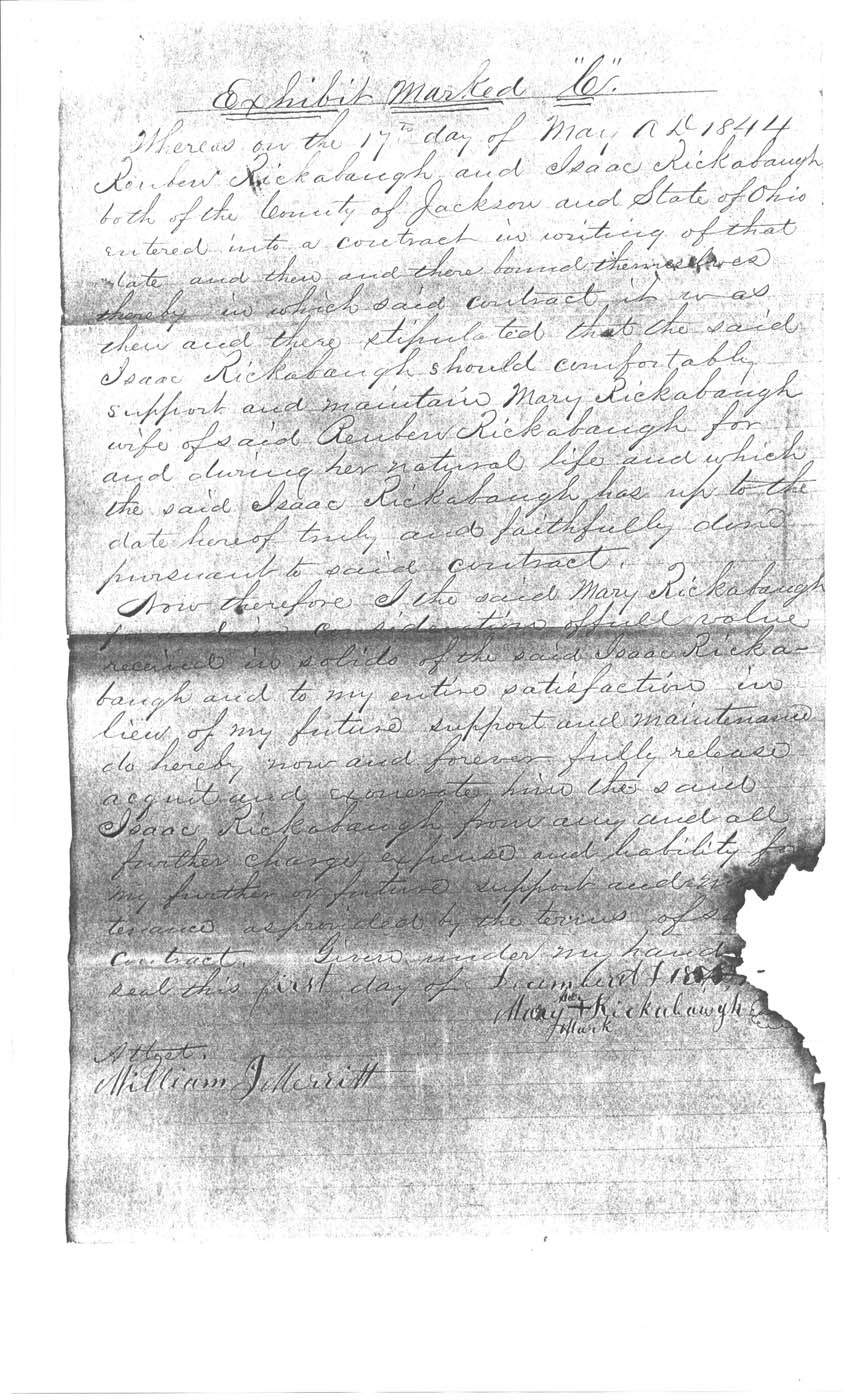 Exhibit Marked "C".
Whereas on the 17th day of May A D 1844
Reuben Rickabaugh and Isaac Rickabaugh
both of the County of Jackson and State of Ohio
entered into a contract in writing of that
date and then and there bound themselves
thereby in which said contract it was
then and there stipulated that the said
Isaac Rickabaugh should comfortably
support and maintain Mary Rickabaugh
wife of said Reuben Rickabaugh for
and during her natural life and which
the said Isaac Rickabaugh has up to the
date hereof truly and faithfully done
pursuant to said contract.
Now therefore I the said Mary Rickabaugh
consideration of full value
received in solids of the said Isaac Ricka-
baugh and to my entire satisfaction in
lieu of my future support and maintenance
do hereby now and forever fully release
acquit and exonerate him the said
Isaac Rickabaugh from any and all
further charge, expense and liability fo
my further or future support and
tenance as provided by the terms of s
contract. Given under my hand
seal this first day of
Mary + Rickabaugh
her
Mark
Attest.
William J Merritt